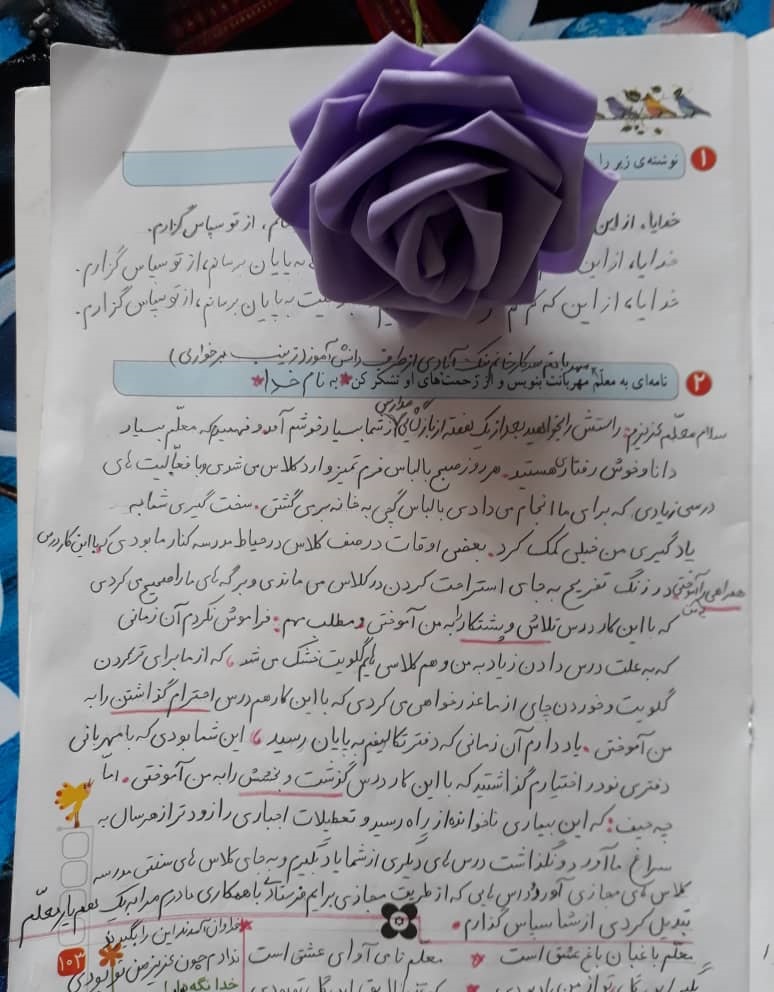 ۱ نوشته‌ی زیر را
خدایا، از این
انم، از تو سپاس گزارم.
خدایا، از این
به پایان برسانم، از تو سپاس گزارم.
خدایا، از این که
به پایان برسانم، از تو سپاس گزارم.
مهربانم سرکار خانم نیک آبادی از طرف دانش آموز (زینب برخواری)
۲ نامه‌ای به معلّم مهربانت بنویس و از زحمت‌های او تشکّر کن * به نام خدا *
سلام معلّم عزیزم: راستش را بخواهید بعد از یک هفته از بازگشایی مدارس از شما بسیار خوشم آمد و فهمیدم که معلّم بسیار
دانا و خوش رفتاری هستید. هر روز صبح با لباس فرم تمیز وارد کلاس می شدی و با فعّالیت های
درسی زیادی که برای ما انجام می دادی با لباس گچی به خانه بر می گشتی. سخت گیری شما به
یاد گیری من خیلی کمک کرد. بعضی اوقات در صف کلاس در حیاط مدرسه کنار ما بودی که با این کار درس
همراهی را به من آموختی در زنگ تفریح به جای استراحت کردن در کلاس می ماندی و برگه های ما را صحیح می کردی
که با این کار درس تلاش و پشتکار را به من آموختی و مطلب مهم: فراموش نکردم آن زمانی
که به علت درس دادن زیاد به من و هم کلاس هایم گلویت خشک می شد، که از ما برای تر کردن
گلویت و خوردن چای از ما عذر خواهی می کردی که با این کار هم درس احترام گذاشتن را به
من آموختی. یاد دارم آن زمانی که دفتر تکالیفم به پایان رسید، این شما بودی که با مهربانی
دفتری نو در اختیارم گذاشتید که با این کار درس گذشت و بخشش را به من آموختی. امّا
چه حیف: که این بیماری ناخوانده از راه رسید و تعطیلات اجباری را زودتر از هر سال به
سراغ ما آورد و نگذاشت درس های دیگری از شما یاد بگیرم و به جای کلاس های سنتی مدرسه
کلاس های مجازی آورد و درس هایی که از طریق مجازی برایم فرستادی با همکاری مادرم مرا به یک همیار معلّم
تبدیل کردی از شما سپاس گذارم.
معلّم باغبان باغ عشق است * معلم نای آوای عشق است
ندارم چون عزیز من تو بودی
خدا نگه‌دار
۱۰۳